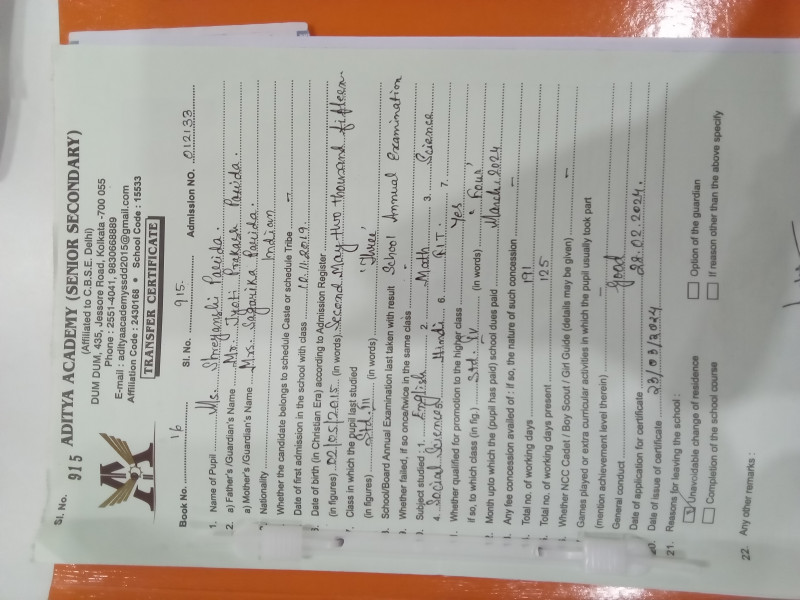 Sl. No. 915
ADITYA ACADEMY (SENIOR SECONDARY)
(Affiliated to C.B.S.E. Delhi)
DUM DUM, 435, Jessore Road, Kolkata -700 055
Phone : 2551-4041, 9830668889
E-mail : adityaacademyssdd2015@gmail.com
Affiliation Code : 2430168 • School Code : 15533
TRANSFER CERTIFICATE
Book No. 16 Sl. No. 915. Admission NO. 012133
1. Name of Pupil Ms. Shreyanshi Parida.
2. a) Father's /Guardian's Name Mr. Jyoti Prakash Parida.
a) Mother's /Guardian's Name Mrs. Sagarika Parida.
Nationality Indian
Whether the candidate belongs to schedule Caste or schedule Tribe -
Date of first admission in the school with class 12.11.2019.
Date of birth (in Christian Era) according to Admission Register
(in figures) 02/05/2015 (in words) Second May two thousand fifteen
Class in which the pupil last studied
(in figures) Std. III (in words) 'Three'
School/Board Annual Examination last taken with result School Annual Examination
Whether failed, if so once/twice in the same class -
Subject studied : 1. English 2. Math 3. Science
4. Social Science 5. Hindi 6. P.I.T. 7.
Whether qualified for promotion to the higher class Yes
if so, to which class (in fig.) Std. IV (in words) 'Four'
Month upto which the (pupil has paid) school dues paid March. 2024
Any fee concession availed of : if so, the nature of such concession -
Total no. of working days 191
Total no. of working days present 125
Whether NCC Cadet / Boy Scout / Girl Guide (details may be given) -
Games played or extra curricular activities in which the pupil usually took part
(mention achievement level therein) -
General conduct Good
Date of application for certificate 28.02.2024.
20. Date of issue of certificate 23/03/2024
21. Reasons for leaving the school :
Unavoidable change of residence Option of the guardian
Completion of the school course If reason other than the above specify
22. Any other remarks :